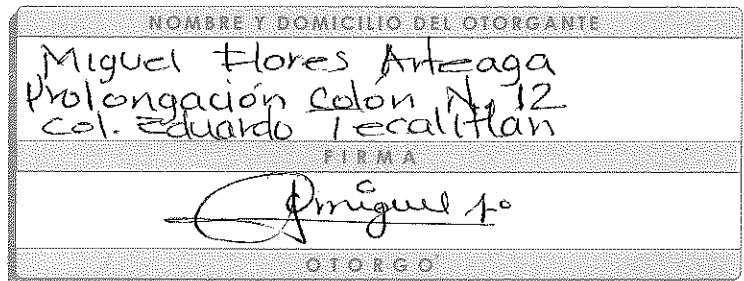 NOMBRE Y DOMICILIO DEL OTORGANTE
Miguel Flores Arteaga
Prolongación Colón N. 12
Col. Eduardo Tecalitlan
FIRMA
Miguel
OTORGO